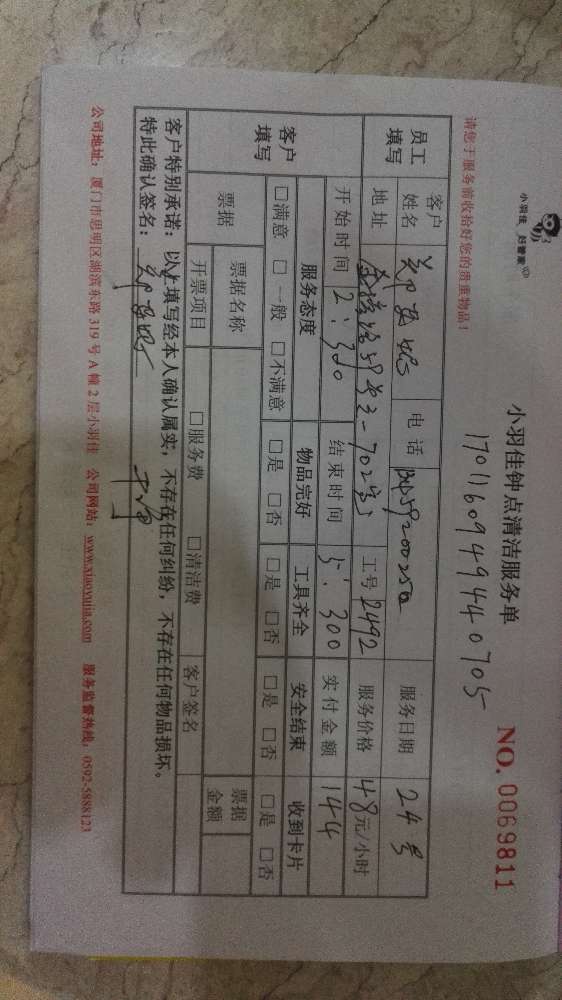 小羽佳 好管家
小羽佳钟点清洁服务单
NO. 0069811
1701160949440705
请您于服务前收拾好您的贵重物品!
员工填写 客户姓名 电话 服务日期 24号
地址 702室 工号 2492 服务价格 48元/小时
开始时间 2:30 结束时间 5:30 实付金额 144
客户填写 服务态度 物品完好 工具齐全 安全结束 收到卡片
□满意 □一般 □不满意 □是 □否 □是 □否 □是 □否 □是 □否
票据 票据名称 票据金额
开票项目 □服务费 □清洁费 客户签名
客户特别承诺:以上填写经本人确认属实,不存在任何纠纷,不存在任何物品损坏。
特此确认签名:
公司地址:厦门市思明区湖滨东路 319 号 A 幢 2 层小羽佳 公司网站:www.xiaoyujia.com 服务监督热线:0592-5888123